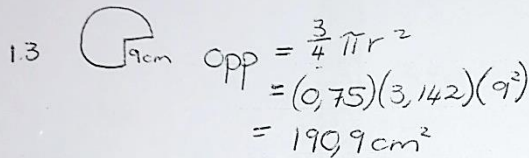 1.3 9cm Opp = 3/4 πr²
= (0,75)(3,142)(9²)
= 190,9 cm²